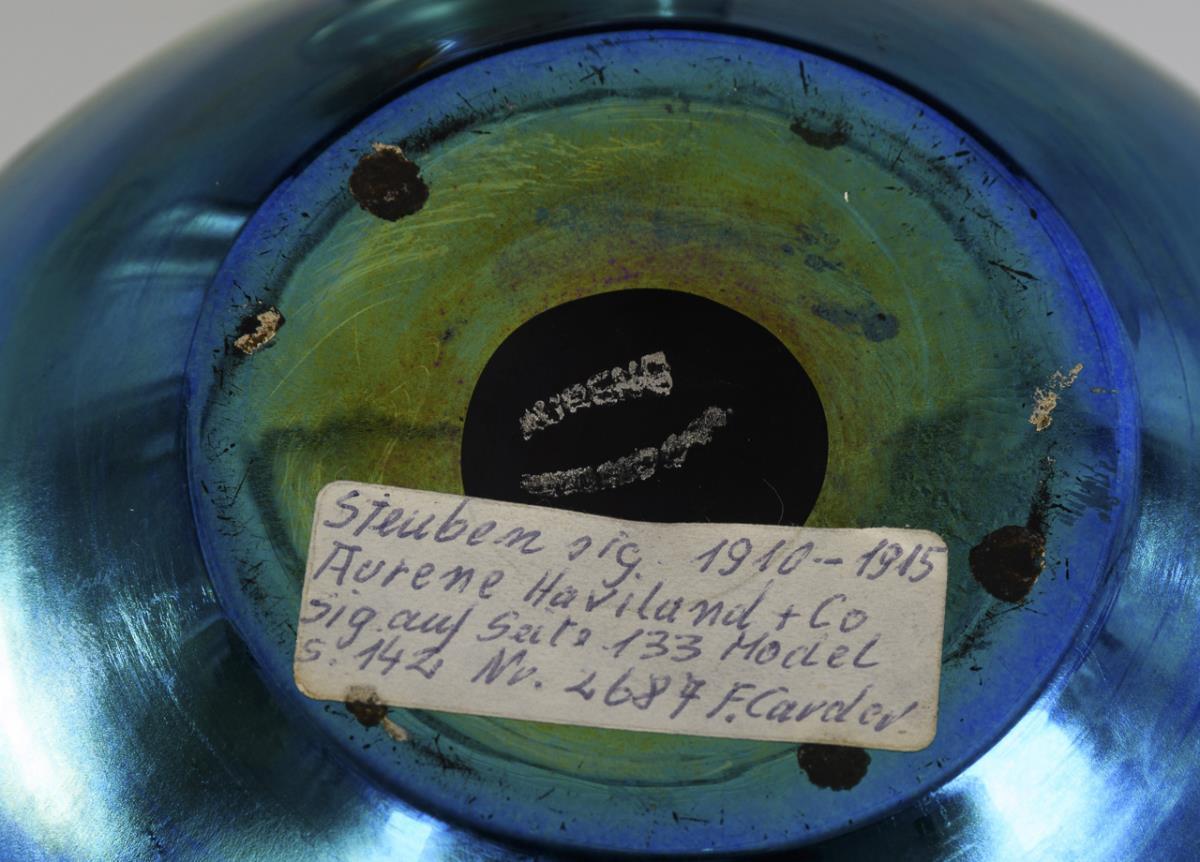 AURENE
Steuben sig. 1910-1915
Aurene Haviland + Co
Sig. auf Seite 133 Model
S. 142 Nr. 2687 F. Carder